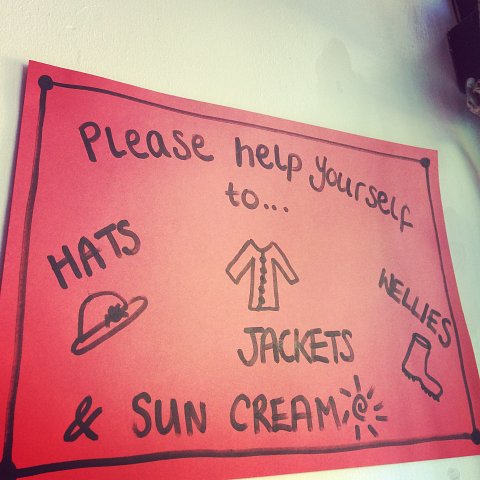 Please help yourself
to...
HATS
WELLIES
JACKETS
& SUN CREAM